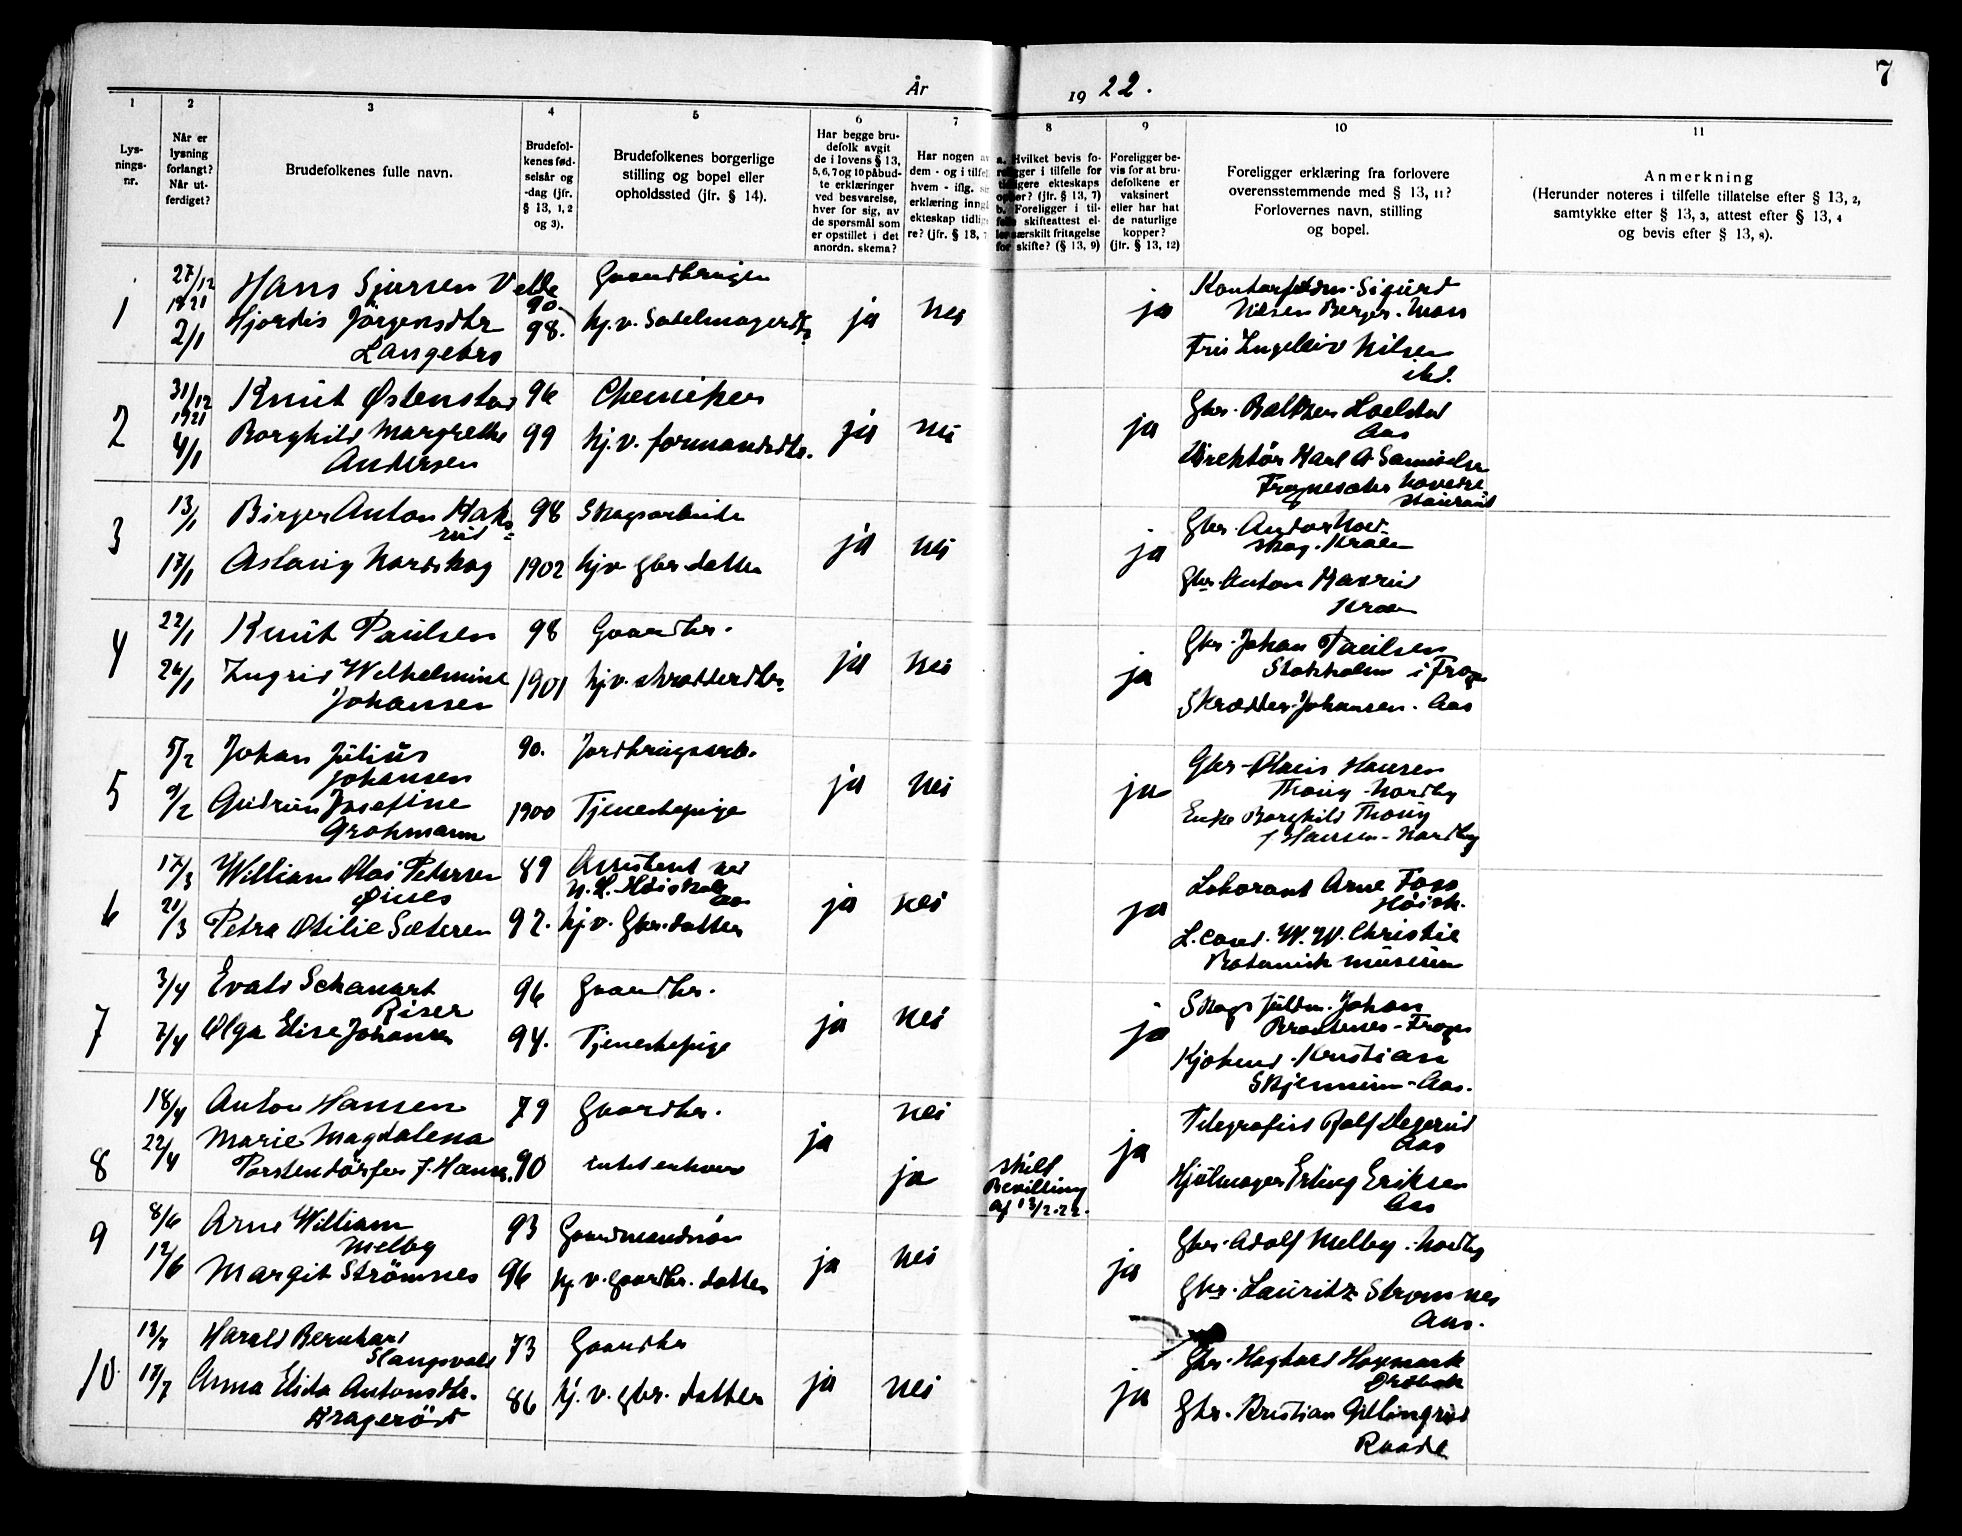 År 1922.
7
1 2 3 4 5 6 7 8 9 10 11
Lysningsnr.
Når er lysning forlangt? Når utferdiget?
Brudefolkenes fulle navn.
Brudefolkenes fødselsår og -dag (jfr. § 13, 1, 2 og 3).
Brudefolkenes borgerlige stilling og bopel eller opholdssted (jfr. § 14).
Har begge brudefolk avgit de i lovens § 13, 5, 6, 7 og 10 påbudte erklæringer ved besvarelse, hver for sig, av de spørsmål som er opstillet i det anordn. skema?
Har nogen av dem - og i tilfelle hvem - iflg. erklæring inngått ekteskap tidligere? (jfr. § 13, 7
a. Hvilket bevis foreligger i tilfelle for tidligere ekteskaps opløsning? (jfr. § 13, 7)
b. Foreligger i tilfelle skifteattest eller særskilt fritagelse for skifte? (§ 13, 9)
Foreligger bevis for at brudefolkene er vaksinert eller har hat de naturlige kopper? (jfr. § 13, 12)
Foreligger erklæring fra forlovere overensstemmende med § 13, 11? Forlovernes navn, stilling og bopel.
Anmerkning
(Herunder noteres i tilfelle tillatelse efter § 13, 2, samtykke efter § 13, 3, attest efter § 13, 4 og bevis efter § 13, 8).
1 27/12 1921 Hans Sjursen Velle 90 Gaardbruger ja nei ja Sigurd
Nilsen Berger. Moss
2/1 Hjordis Jörgensdtr 98. hj.v. Sadelmagerdtr
Langebro Frü Ingeleiv Nilsen
ibd.
2 31/12 1921 Knüt Østenstad 96 Chemiker ja nei ja Gbr.
Aas
4/1 Borghild Margrethe 99 hj.v. formandsdtr. Direktör Karl A
Andersen Frognesæter hovedre
staurant
3 13/1 Birger Anton Haks 98 Skogsarbeide ja nei ja Gbr. Andor Nord
rud skog. Kroer
17/1 Aslaug Nordskog 1902 hjv Gbr datter Gbr. Anton Haxrüd
Kroer
4 22/1 Knüt Paülsen 98 Gaardbr. ja nei ja Gbr. Johan Paülsen
Stokholm i Frogn
26/1 Ingrid Wilhelmine 1901 hj.v. skrædderdtr. Skrædder Johansen. Aas
Johansen
5 5/2 Johan Jülius 90. Jordbrugsarb. ja nei ja Gbr Olaüs Hansen
Johansen Thoüg Nordby
9/2 Gudrün Josefine 1900 Tjenestepige Enke Borghild Thoüg
Grohmann f Hansen - Nordby
6 17/3 William Olai Petersen 89 Assistent ved ja nei ja Laborant Arne Foss
Øines N. L. Høiskole Høisk.
Aas
21/3 Petra Otilie Sæteren 92. hj.v. Gbr. datter L. cand. W. W. Christie
Botanisk müseüm
7 3/4 Evald Schanart 96 Gaardbr. ja nei ja Skogsfüldm. Johan
Riser Braatenes - Frogn
7/4 Olga Elise Johansen 94. Tjenestepige Kristian
Skjennüm - Aas.
8 18/4 Anton Hansen 79 Gaardbr. ja nei ja Telegrafist Rolf
Aas
22/4 Marie Magdalena 90 intet erhverv ja skilt Hjülmager Erling Eriksen
Porstendörfer f. Hansen. Bevilling Aas
af 13/2.22.
9 8/6 Arne William 93 Gaardmandssön ja nei ja Gbr. Adolf Melby. Nordby
Melby
12/6 Margit Strömnes 96 hj.v. Gaardbr. datter Gbr. Lauritz Strømnes
Aas.
10 13/7 Harald Bernhard 73 Gaardbr ja nei ja Gbr. Hagbard Haxmark
Slangsvold Drøbak
17/7 Anna Elida Antonsdtr. 86 hj.v. gbr. datter Gbr. Kristian Gillingrüd
Krageröst Raade